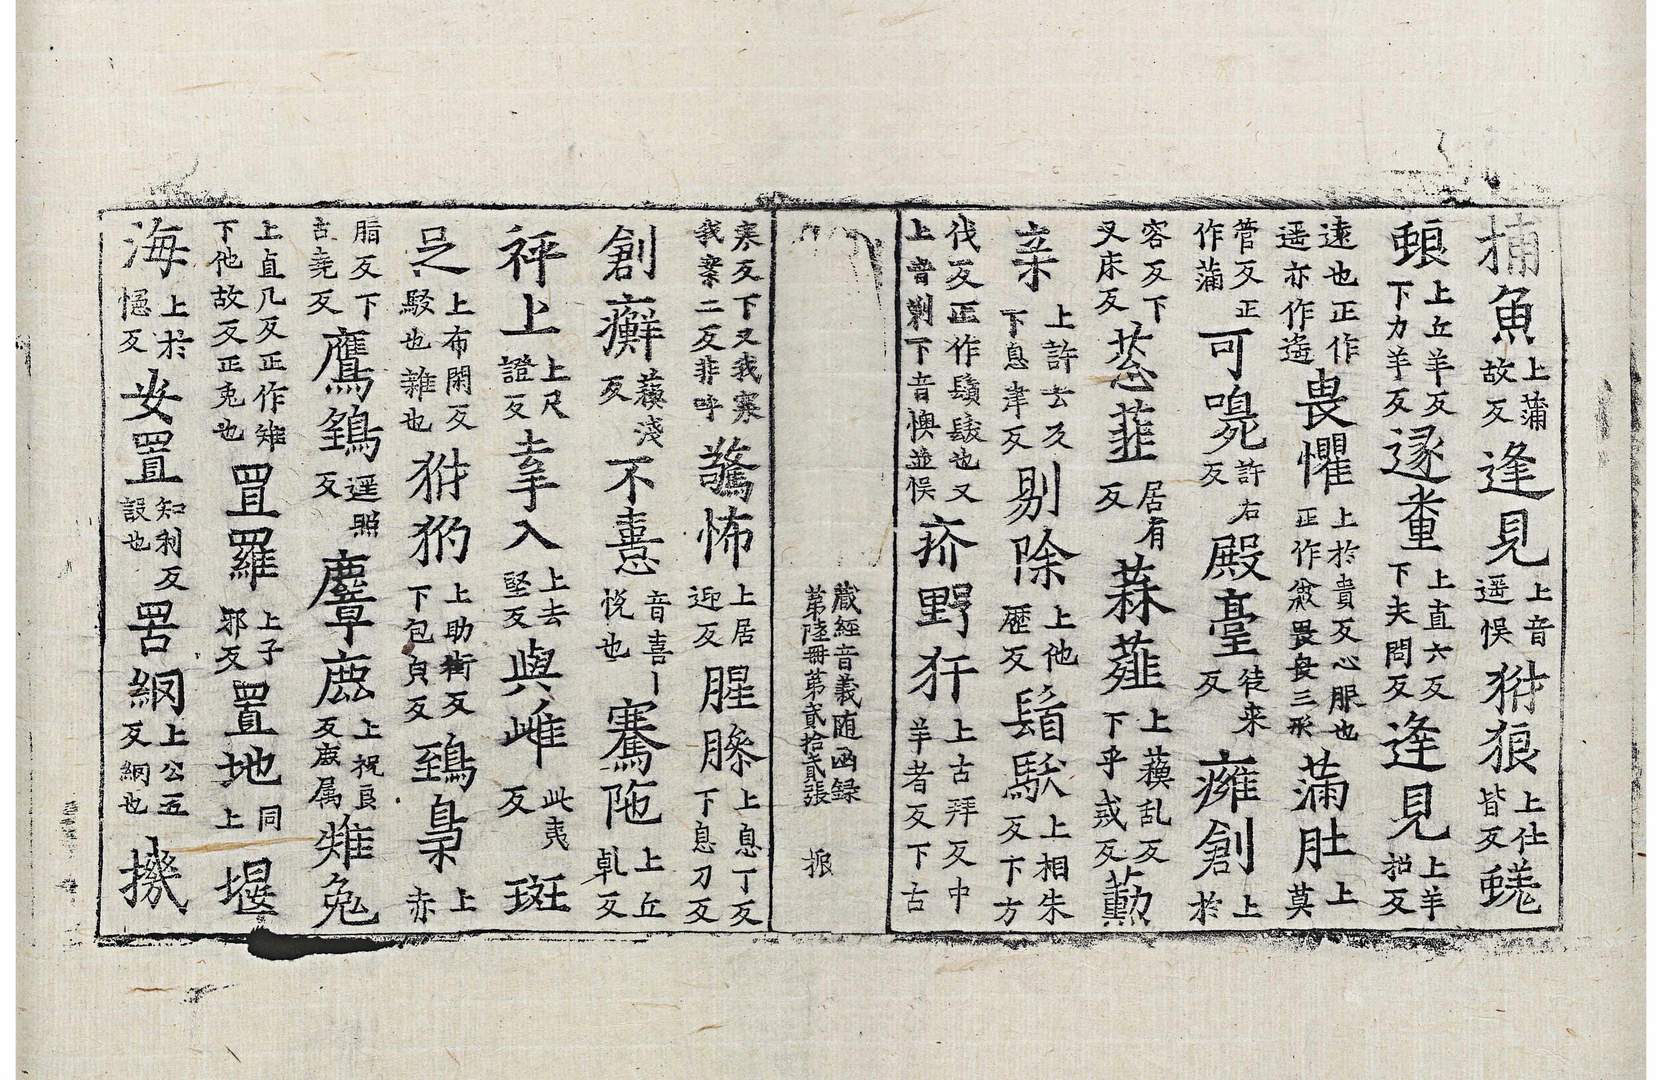 捕魚上蒲故反逢見上音遥悮犲狼上仕皆反蜣
蜋上丘羊反下力羊反逐糞上直六反下夫問反逢見上羊招反
遠也正作遥亦作遙畏懼上於貴反心服也正作畏三形滿肚上莫
管反正作滿可嗅許右反殿臺徒来反癰創上於
容反下叉床反葱韮居有反蒜薤上蘓乱反下乎戒反勲
辛上許云反下息津反剔除上他歷反鬚髮上相朱反下方
伐反正作鬚髮也又上音剃下音懊並悮疥野犴上古拜反中羊者反下古
藏經音義随函録第陸冊第貳拾貳張 振
寒反下又我寒我案二反非呼驚怖上居迎反腥臊上息丁反下息刀反
創癬蘓淺反不憙音喜｜悦也騫陁上丘乹反
秤上上尺證反牽入上去堅反與雌此夷反斑
足上布閑反駁也雜也犲犳上助街反下包皃反鵄梟上赤
脂反下古堯反鷹鷂遥照反麞鹿上祝良反鹿属雉兔
上直几反正作雉下他故反正兎也罝羅上子邪反置地上同堰
海上於憶反安置知利反設也罟網上公五反網也機